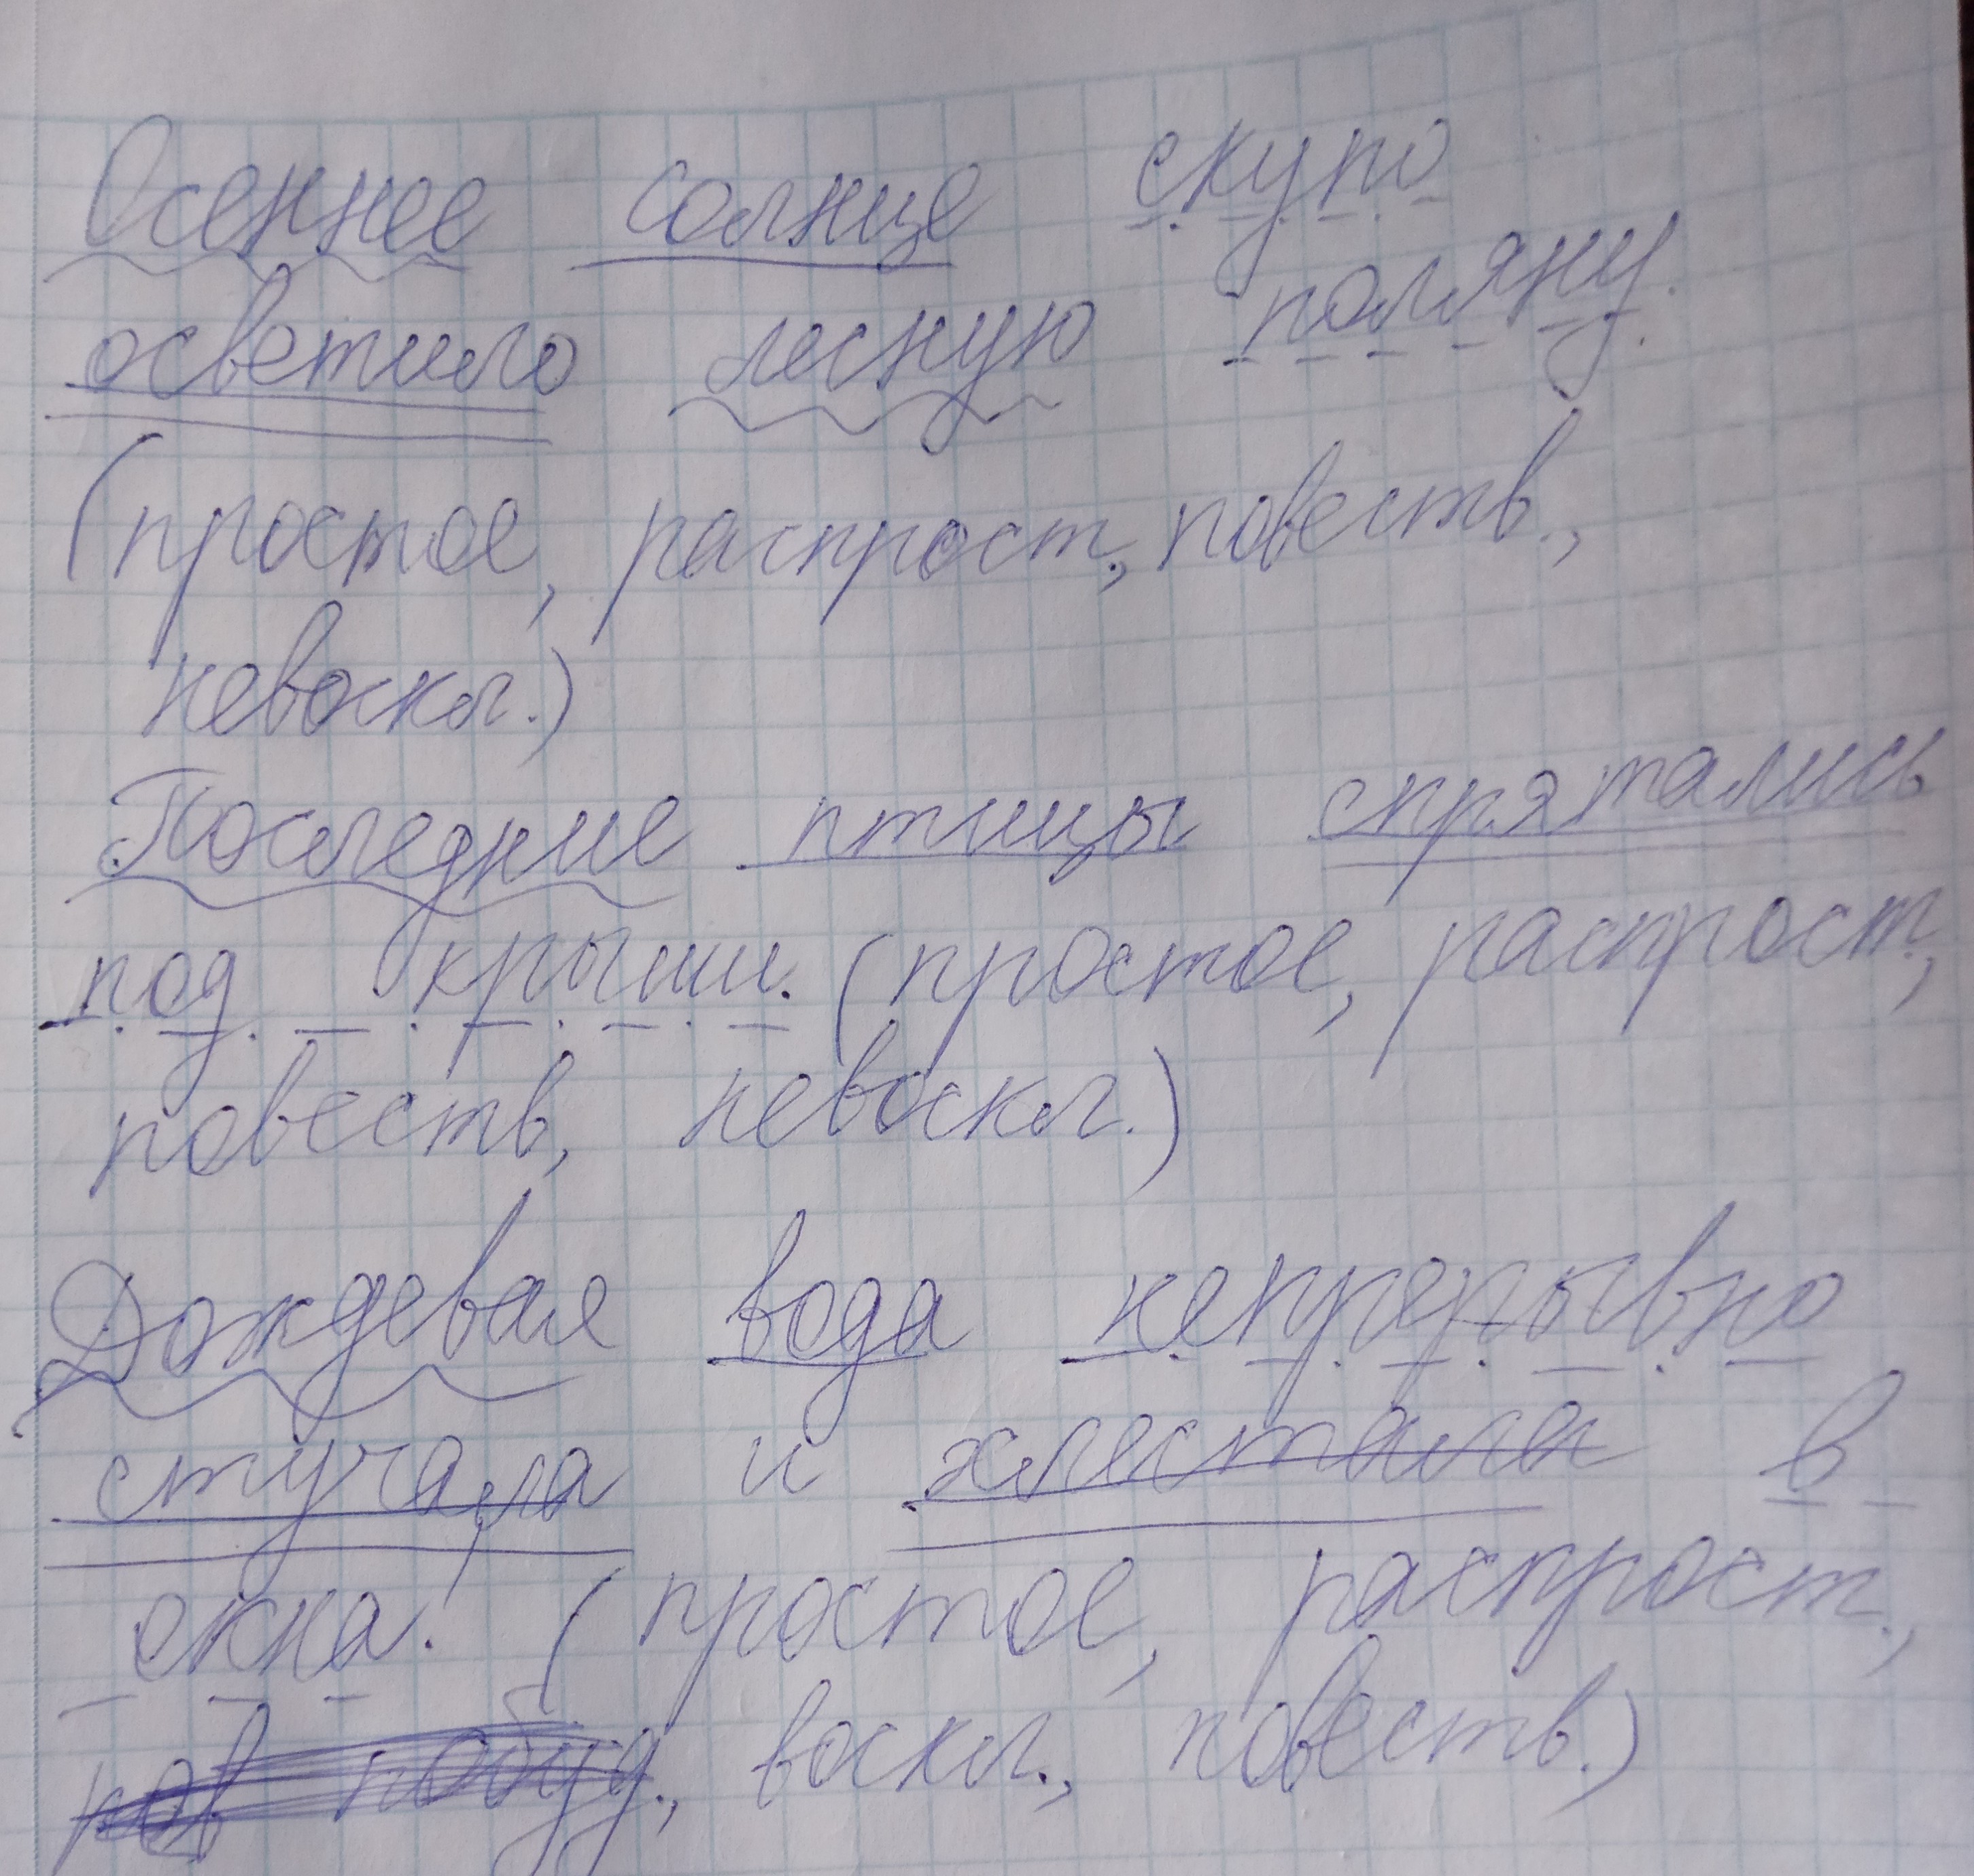 Осеннее солнце скупо
осветило лесную поляну.
(простое, распрост., повеств.,
невоскл.)
Последние птицы спрятались
под крыши. (простое, распрост.,
повеств., невоскл.)
Дождевая вода непрерывно
стучала и хлестала в
окна! (простое, распрост.,
пов побуд., воскл., повеств.)